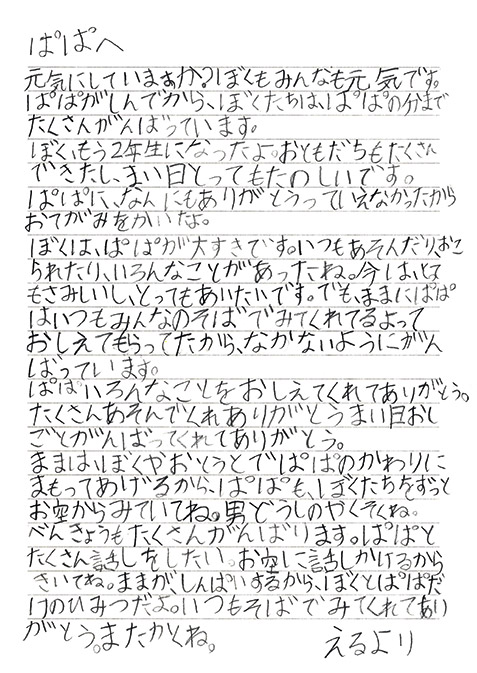 ぱぱへ
元気にしていますか?ぼくもみんなも元気です。
ぱぱがしんでから、ぼくたちは、ぱぱの分まで
たくさんがんばっています。
ぼく、もう2年生になったよ。おともだちもたくさん
できたし、まい日とってもたのしいです。
ぱぱに、なんにもありがとうっていえなかったから
おてがみをかいたよ。
ぼくは、ぱぱが大すきです。いつもあそんだり、おこ
られたり、いろんなことがあったね。今は、とて
もさみしいし、とってもあいたいです。でも、ままにぱぱ
はいつもみんなのそばでみてくれてるよって
おしえてもらってたから、なかないようにがん
ばっています。
ぱぱいろんなことをおしえてくれてありがとう。
たくさんあそんでくれありがとうまい日おし
ごとがんばってくれてありがとう。
ままは、ぼくやおとうとでぱぱのかわりに
まもってあげるから、ぱぱも、ぼくたちをずっと
お空からみていてね。男どうしのやくそくね。
べんきょうもたくさんがんばります。ぱぱと
たくさん話しをしたい。お空に話しかけるから
きいてね。ままが、しんぱいするから、ぼくとぱぱだ
けのひみつだよ。いつもそばでみてくれてあり
がとう。またかくね。 えるより